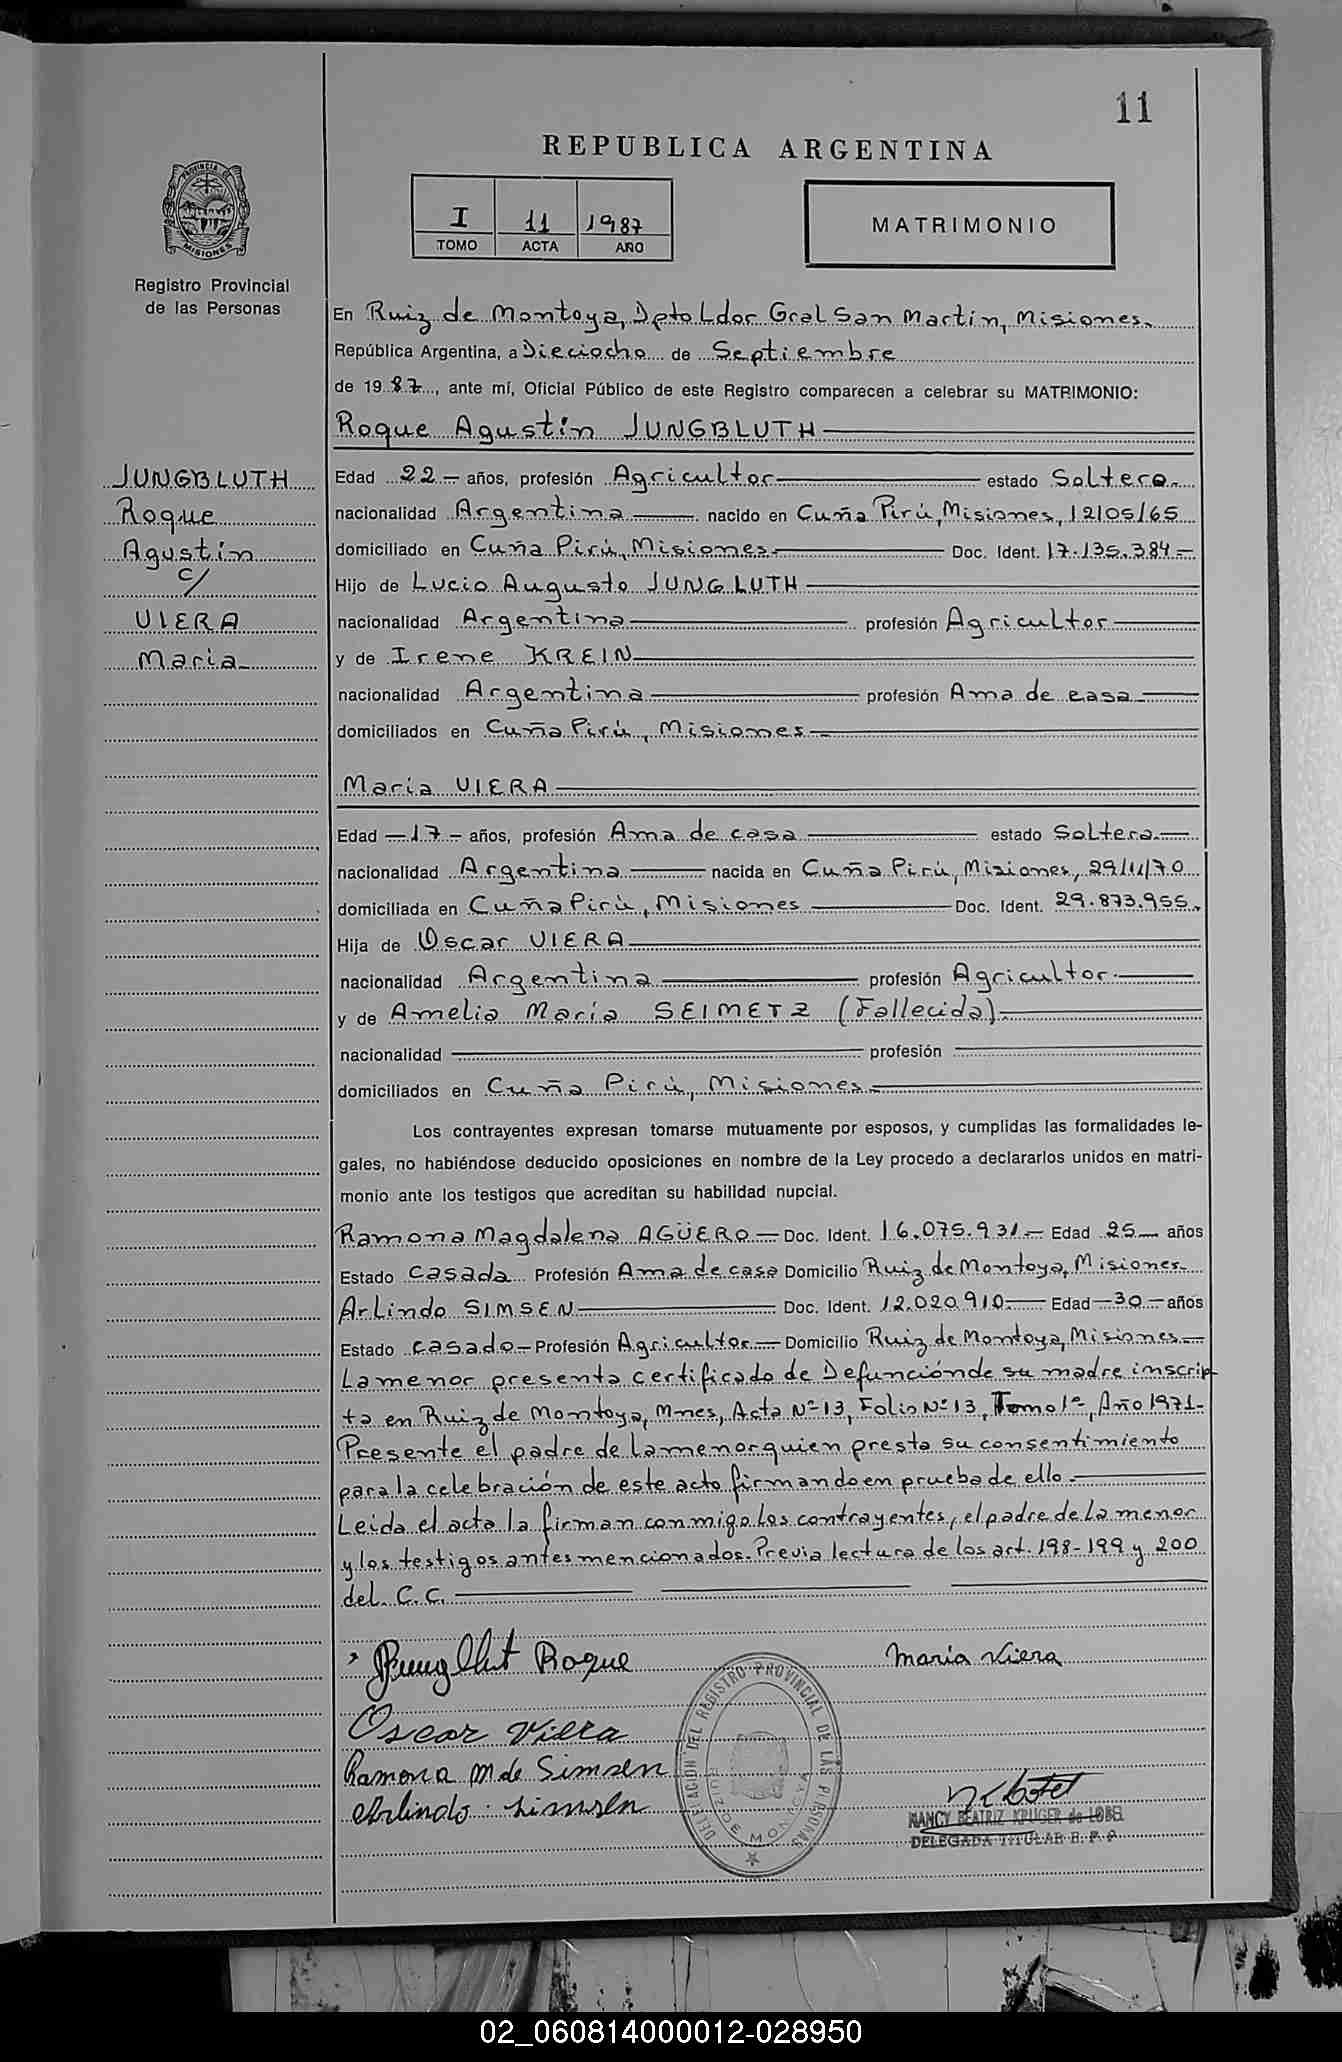 11
REPUBLICA ARGENTINA
I 11 1987
TOMO ACTA AÑO
MATRIMONIO
PROVINCIA DE
MISIONES
Registro Provincial
de las Personas
En Ruiz de Montoya, Dpto Ldor Gral San Martín, Misiones.
República Argentina, a Dieciocho de Septiembre
de 1987, ante mí, Oficial Público de este Registro comparecen a celebrar su MATRIMONIO:
Roque Agustín JUNGBLUTH
JUNGBLUTH
Roque
Agustín
c/
VIERA
Maria
Edad 22 años, profesión Agricultor estado Soltero
nacionalidad Argentina nacido en Cuña Pirú, Misiones, 12/05/65
domiciliado en Cuña Pirú, Misiones Doc. Ident. 17.135.384
Hijo de Lucio Augusto JUNGLUTH
nacionalidad Argentina profesión Agricultor
y de Irene KREIN
nacionalidad Argentina profesión Ama de casa
domiciliados en Cuña Pirú, Misiones
Maria VIERA
Edad 17 años, profesión Ama de casa estado Soltera
nacionalidad Argentina nacida en Cuña Pirú, Misiones, 29/11/70
domiciliada en Cuña Pirú, Misiones Doc. Ident. 29.873.955.
Hija de Oscar VIERA
nacionalidad Argentina profesión Agricultor
y de Amelia María SEIMETZ (Fallecida)
nacionalidad profesión
domiciliados en Cuña Pirú, Misiones
Los contrayentes expresan tomarse mutuamente por esposos, y cumplidas las formalidades le-
gales, no habiéndose deducido oposiciones en nombre de la Ley procedo a declararlos unidos en matri-
monio ante los testigos que acreditan su habilidad nupcial.
Ramona Magdalena AGÜERO Doc. Ident. 16.075.931 Edad 25 años
Estado casada Profesión Ama de casa Domicilio Ruiz de Montoya, Misiones
Arlindo SIMSEN Doc. Ident. 12.020.910 Edad 30 años
Estado casado Profesión Agricultor Domicilio Ruiz de Montoya, Misiones
La menor presenta certificado de Defunción de su madre inscrip-
ta en Ruiz de Montoya, Mnes, Acta Nº 13, Folio Nº 13, Tomo 1º, Año 1971-
Presente el padre de la menor quien presta su consentimiento
para la celebración de este acto firmando en prueba de ello.
Leida el acta la firman conmigo los contrayentes, el padre de la menor
y los testigos antes mencionados. Previa lectura de los art. 198-199 y 200
del C.C.
Roque
Maria Viera
Oscar Viera
Ramona M de Simsen
Arlindo Simsen
DELEGACION DEL REGISTRO PROVINCIAL DE LAS PERSONAS
RUIZ DE MONTOYA
NANCY BEATRIZ KRUGER de LOBEL
DELEGADA TITULAR R. P. P.
02_060814000012-028950